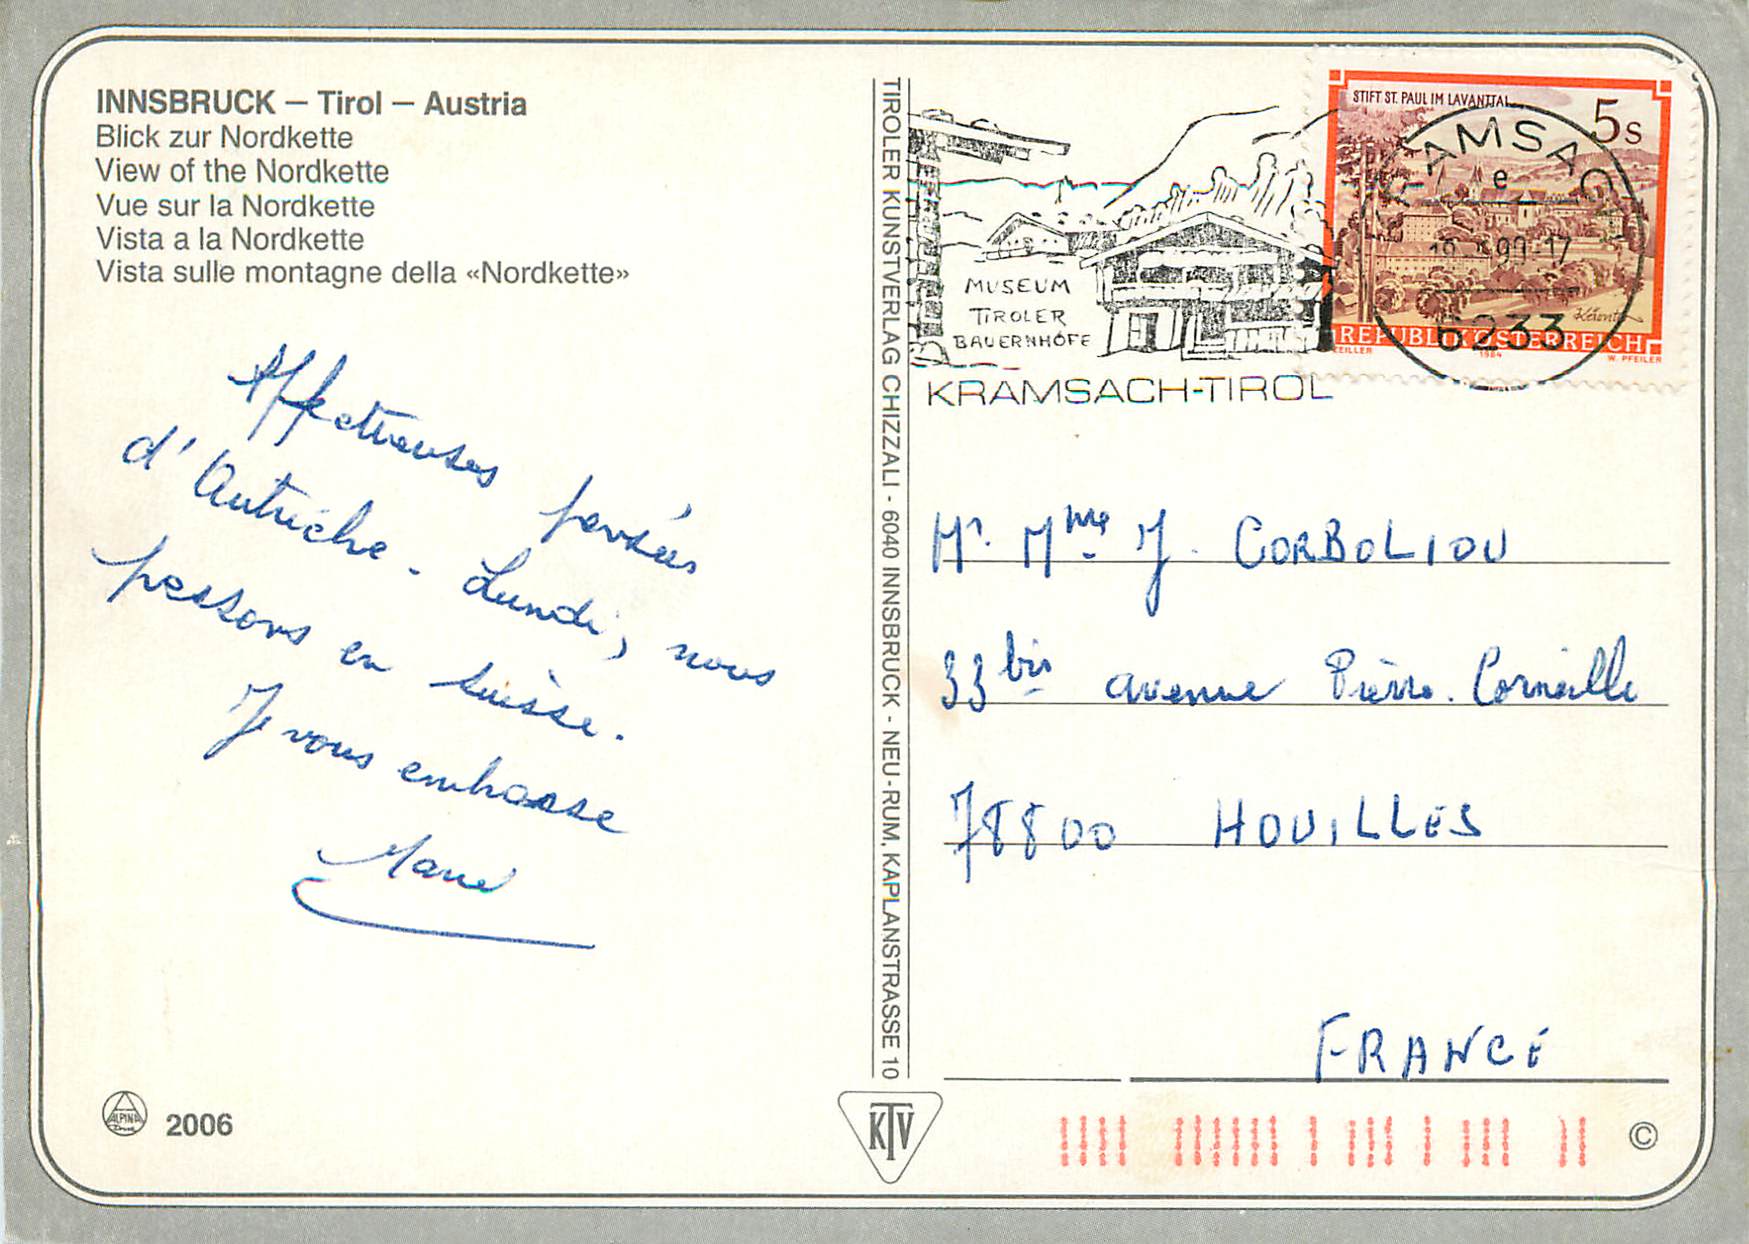 INNSBRUCK – Tirol – Austria
Blick zur Nordkette
View of the Nordkette
Vue sur la Nordkette
Vista a la Nordkette
Vista sulle montagne della «Nordkette»
Affectueuses pensées
d'Autriche. Lundi, nous
passons en Suisse.
Je vous embrasse
ALPINA
2006
TIROLER KUNSTVERLAG CHIZZALI - 6040 INNSBRUCK - NEU-RUM, KAPLANSTRASSE 10
KTV
MUSEUM
TIROLER
BAUERNHÖFE
KRAMSACH-TIROL
STIFT ST. PAUL IM LAVANTTAL
5s
REPUBLIK ÖSTERREICH
1984
W. PFEILER
KRAMSACH
e
6233
Mr. Mme J. CORBOLIOU
33 bis avenue Pierre. Corneille
78800 HOUILLES
FRANCE
©